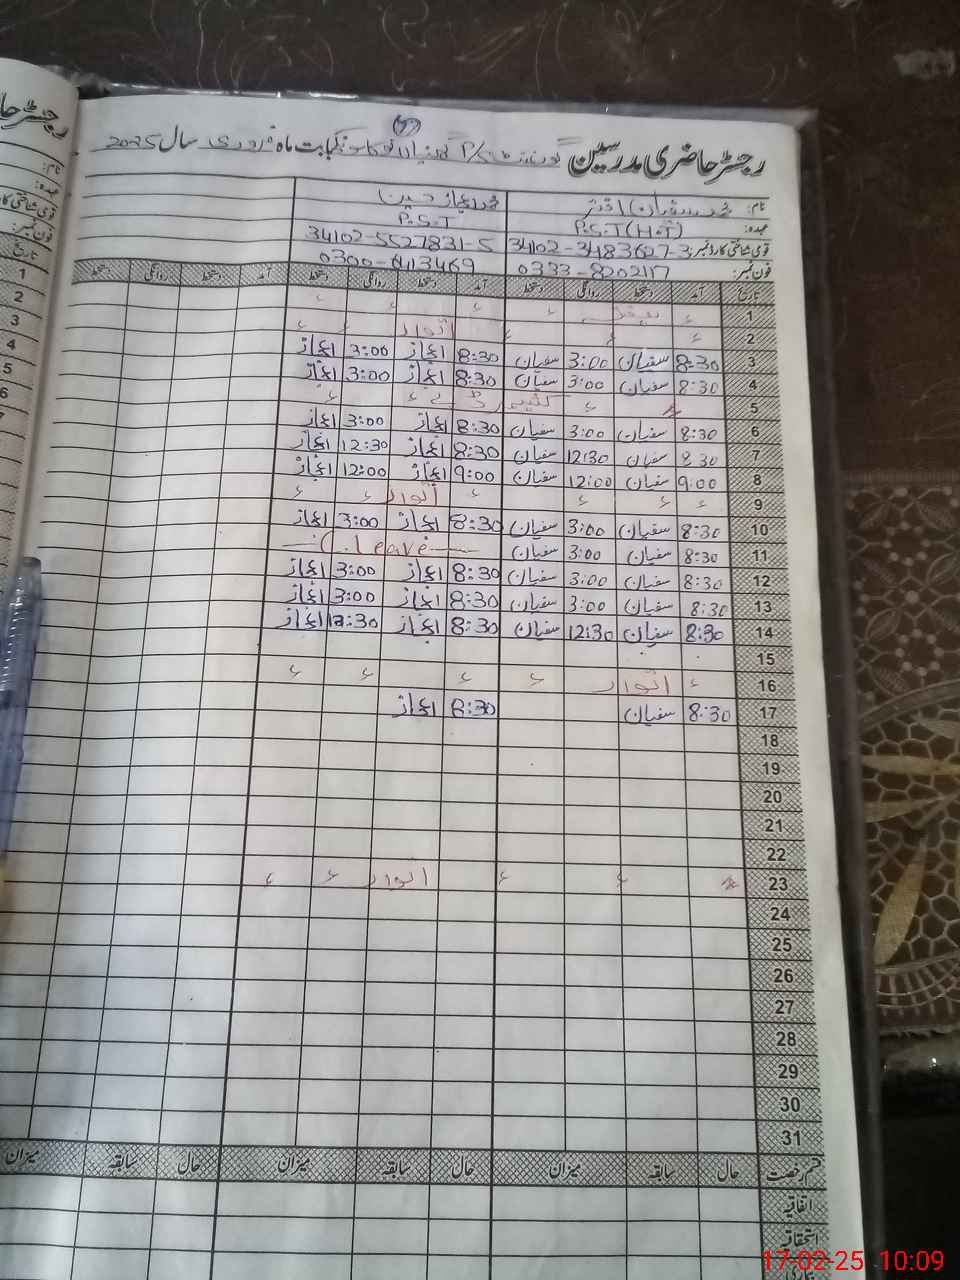 رجسٹر حاضری مدرسین گورنمنٹ P/S بابت ماہ فروری سال 2025
نام: محمد سفیان اختر محمد اعجاز حسین
عہدہ: P.S.T (H.T) P.S.T
قومی شناختی کارڈ نمبر: 34102-3483627-3 34102-5527831-5
فون نمبر: 0333-8202117 0300-6413469
تاریخ آمد دستخط روانگی دستخط آمد دستخط روانگی دستخط آمد دستخط روانگی دستخط
1 ء ء ء ء ء
2 ء ء ء اتوار ء ء
3 8:30 سفیان 3:00 سفیان 8:30 اعجاز 3:00 اعجاز
4 8:30 سفیان 3:00 سفیان 8:30 اعجاز 3:00 اعجاز
5 ء ء کشمیر ڈے ء ء
6 8:30 سفیان 3:00 سفیان 8:30 اعجاز 3:00 اعجاز
7 8:30 سفیان 12:30 سفیان 8:30 اعجاز 12:30 اعجاز
8 9:00 سفیان 12:00 سفیان 9:00 اعجاز 12:00 اعجاز
9 ء ء ء ء اتوار ء ء
10 8:30 سفیان 3:00 سفیان 8:30 اعجاز 3:00 اعجاز
11 8:30 سفیان 3:00 سفیان C.Leave
12 8:30 سفیان 3:00 سفیان 8:30 اعجاز 3:00 اعجاز
13 8:30 سفیان 3:00 سفیان 8:30 اعجاز 3:00 اعجاز
14 8:30 سفیان 12:30 سفیان 8:30 اعجاز 12:30 اعجاز
15
16 ء اتوار ء ء ء ء
17 8:30 سفیان 8:30 اعجاز
18
19
20
21
22
23 ء ء ء اتوار ء ء
24
25
26
27
28
29
30
31
قسم رخصت حال سابقہ میزان حال سابقہ میزان حال سابقہ میزان
اتفاقیہ
استحقاقیہ
رجسٹر حا
نام:
عہدہ:
قومی شناختی کار
فون نمبر:
تاریخ
1
2
3
4
5
6
7
17-02-25 10:09